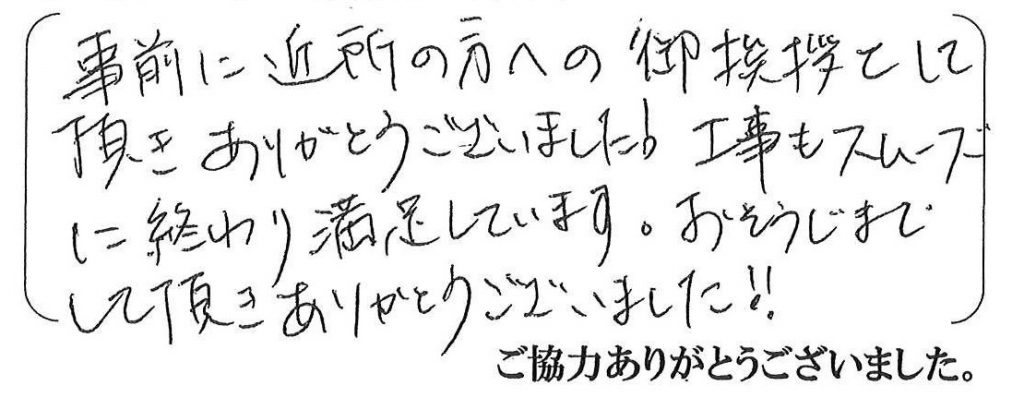 事前に近所の方への御挨拶をして
頂きありがとうございました。工事もスムーズ
に終わり満足しています。おそうじまで
して頂きありがとうございました!!
ご協力ありがとうございました。